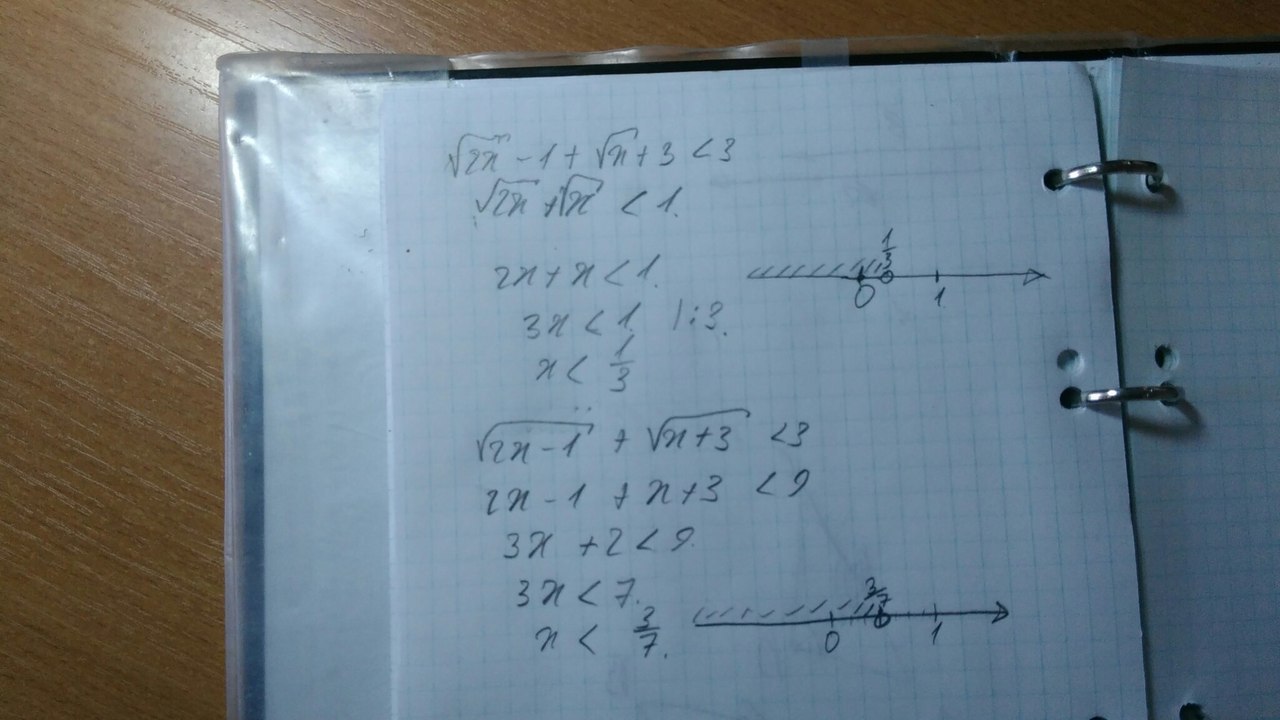 √2x - 1 + √x + 3 < 3
√2x + √x < 1.
2x + x < 1.
3x < 1. | : 3.
x < 1/3
1/3
0 1
√(2x - 1) + √(x + 3) < 3
2x - 1 + x + 3 < 9
3x + 2 < 9.
3x < 7.
x < 3/7.
3/7
0 1